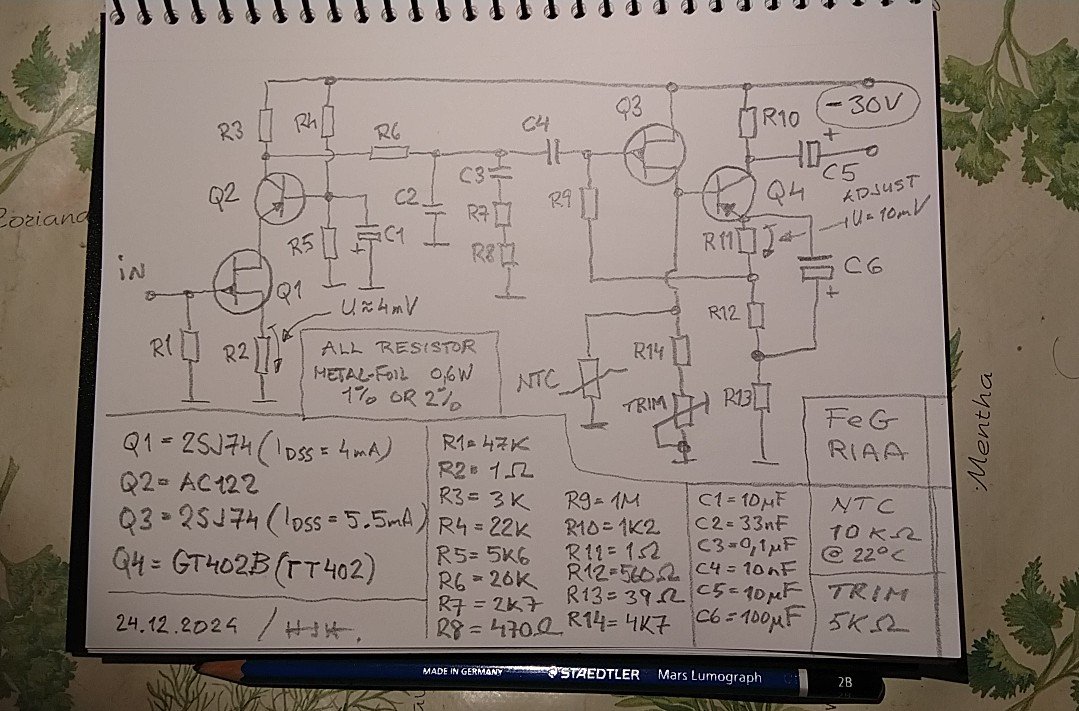 Coriand
Mentha
R3
R4
R6
C4
Q3
R10
-30V
+
C5
Q2
C3
C2
R7
R9
Q4
ADJUST
U=10mV
R5
C1
+
R8
R11
C6
+
iN
Q1
U≈4mV
R12
R1
R2
ALL RESISTOR
METAL-FOIL 0,6W
1% OR 2%
NTC
R14
TRIM
R13
FeG
RIAA
Q1 = 2SJ74 (IDSS = 4mA)
Q2 = AC122
Q3 = 2SJ74 (IDSS = 5.5mA)
Q4 = GT402B (ΓT402)
24.12.2024 /
R1 = 47K
R2 = 1Ω
R3 = 3K
R4 = 22K
R5 = 5K6
R6 = 20K
R7 = 2K7
R8 = 470Ω
R9 = 1M
R10 = 1K2
R11 = 1Ω
R12 = 560Ω
R13 = 39Ω
R14 = 4K7
C1 = 10µF
C2 = 33nF
C3 = 0,1µF
C4 = 10nF
C5 = 10µF
C6 = 100µF
NTC
10KΩ
@ 22°C
TRIM
5KΩ
MADE IN GERMANY STAEDTLER Mars Lumograph 2B